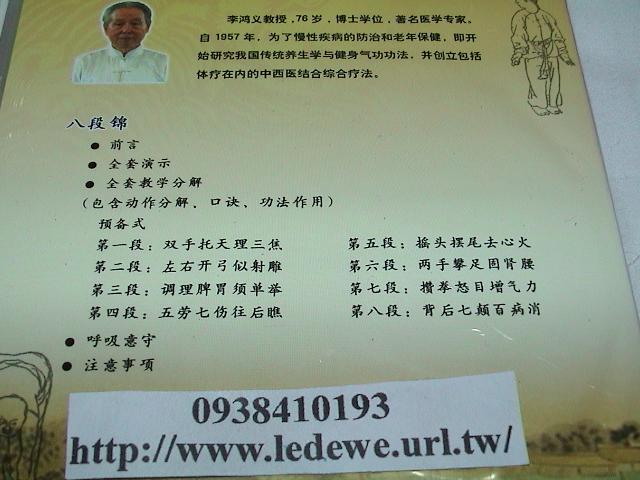 李鸿义教授，76 岁，博士学位，著名医学专家。
自 1957 年，为了慢性疾病的防治和老年保健，即开
始研究我国传统养生学与健身气功功法，并创立包括
体疗在内的中西医结合综合疗法。
八段锦
● 前言
● 全套演示
● 全套教学分解
（包含动作分解、口诀、功法作用）
预备式
第一段：双手托天理三焦
第二段：左右开弓似射雕
第三段：调理脾胃须单举
第四段：五劳七伤往后瞧
第五段：摇头摆尾去心火
第六段：两手攀足固肾腰
第七段：攒拳怒目增气力
第八段：背后七颠百病消
● 呼吸意守
● 注意事项
0938410193
http://www.ledewe.url.tw/